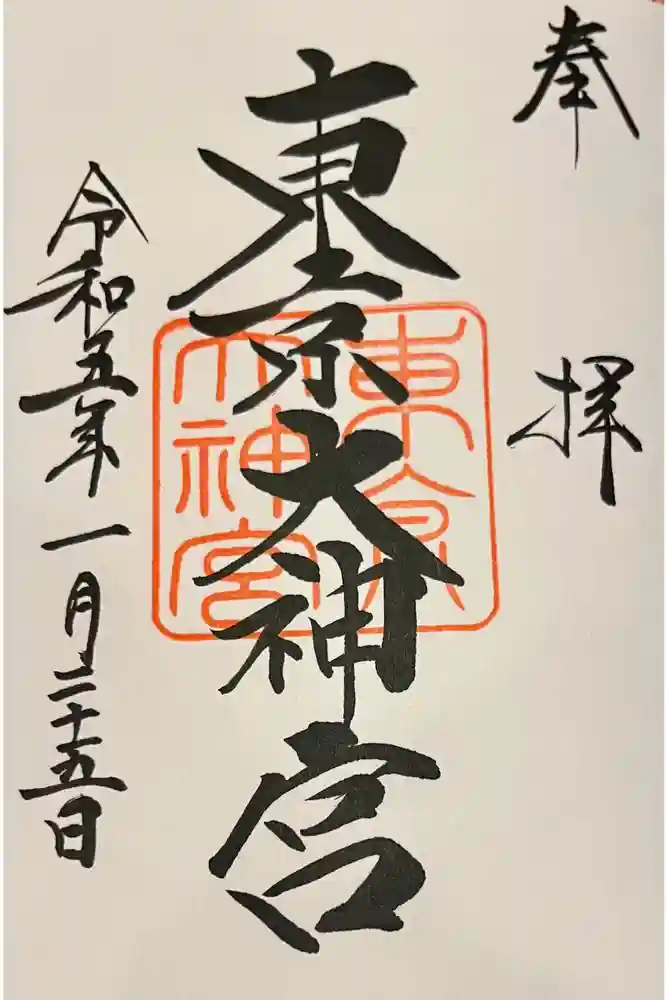 奉拝
東京大神宮
東京
大神宮
令和五年一月二十五日